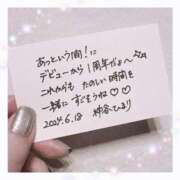 あっという間!に
デビューから1周年だよ〜☆☆
これからも たのしい時間を
一緒に すごそうね♡♡
2024.6.18 神谷ひまり